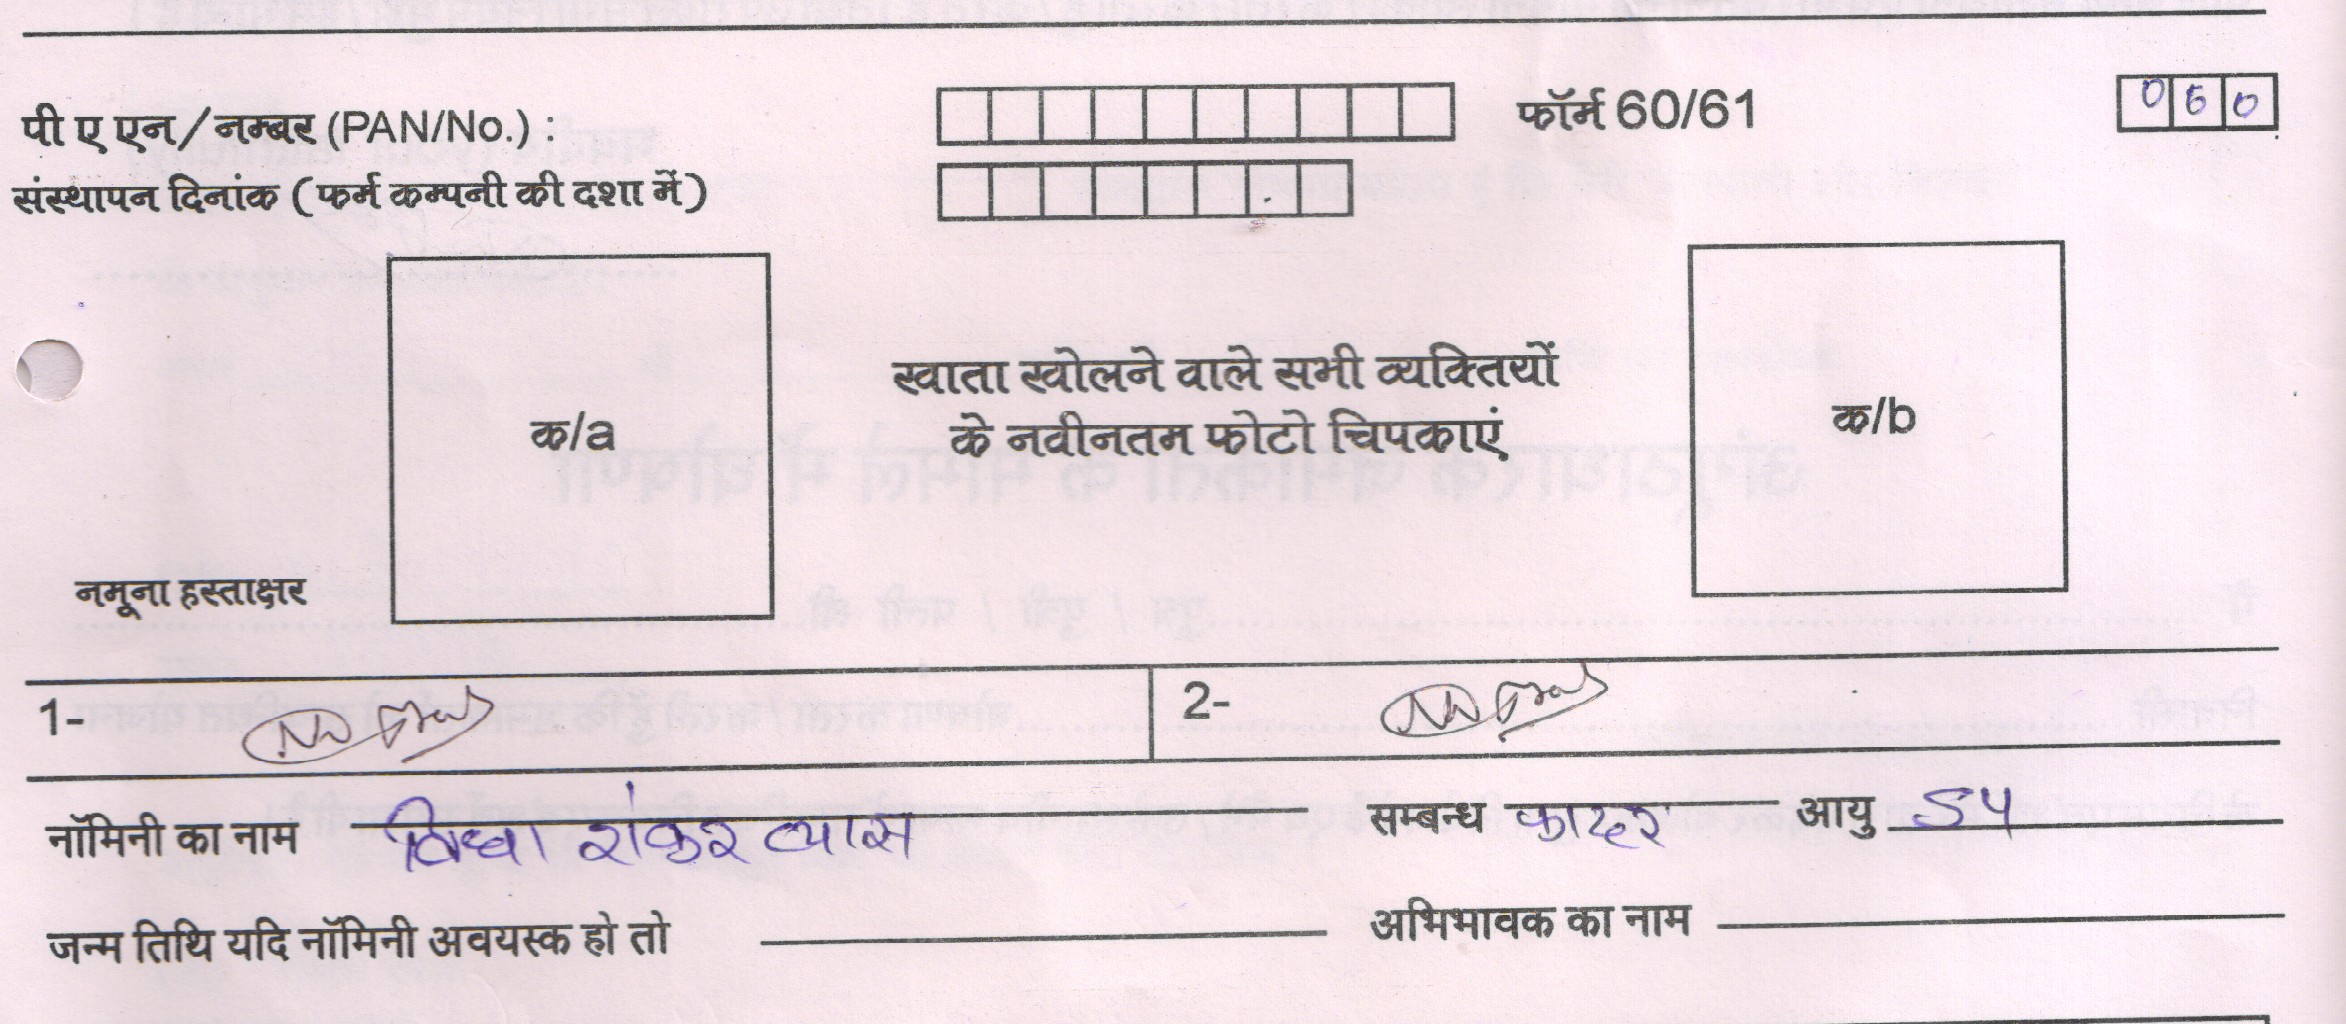 पी ए एन/नम्बर (PAN/No.) : फॉर्म 60/61 060
संस्थापन दिनांक (फर्म कम्पनी की दशा में)
क/a
खाता खोलने वाले सभी व्यक्तियों
के नवीनतम फोटो चिपकाएं
क/b
नमूना हस्ताक्षर
1- 2-
नॉमिनी का नाम विधा शंकर व्यास सम्बन्ध आयु 54
जन्म तिथि यदि नॉमिनी अवयस्क हो तो अभिभावक का नाम